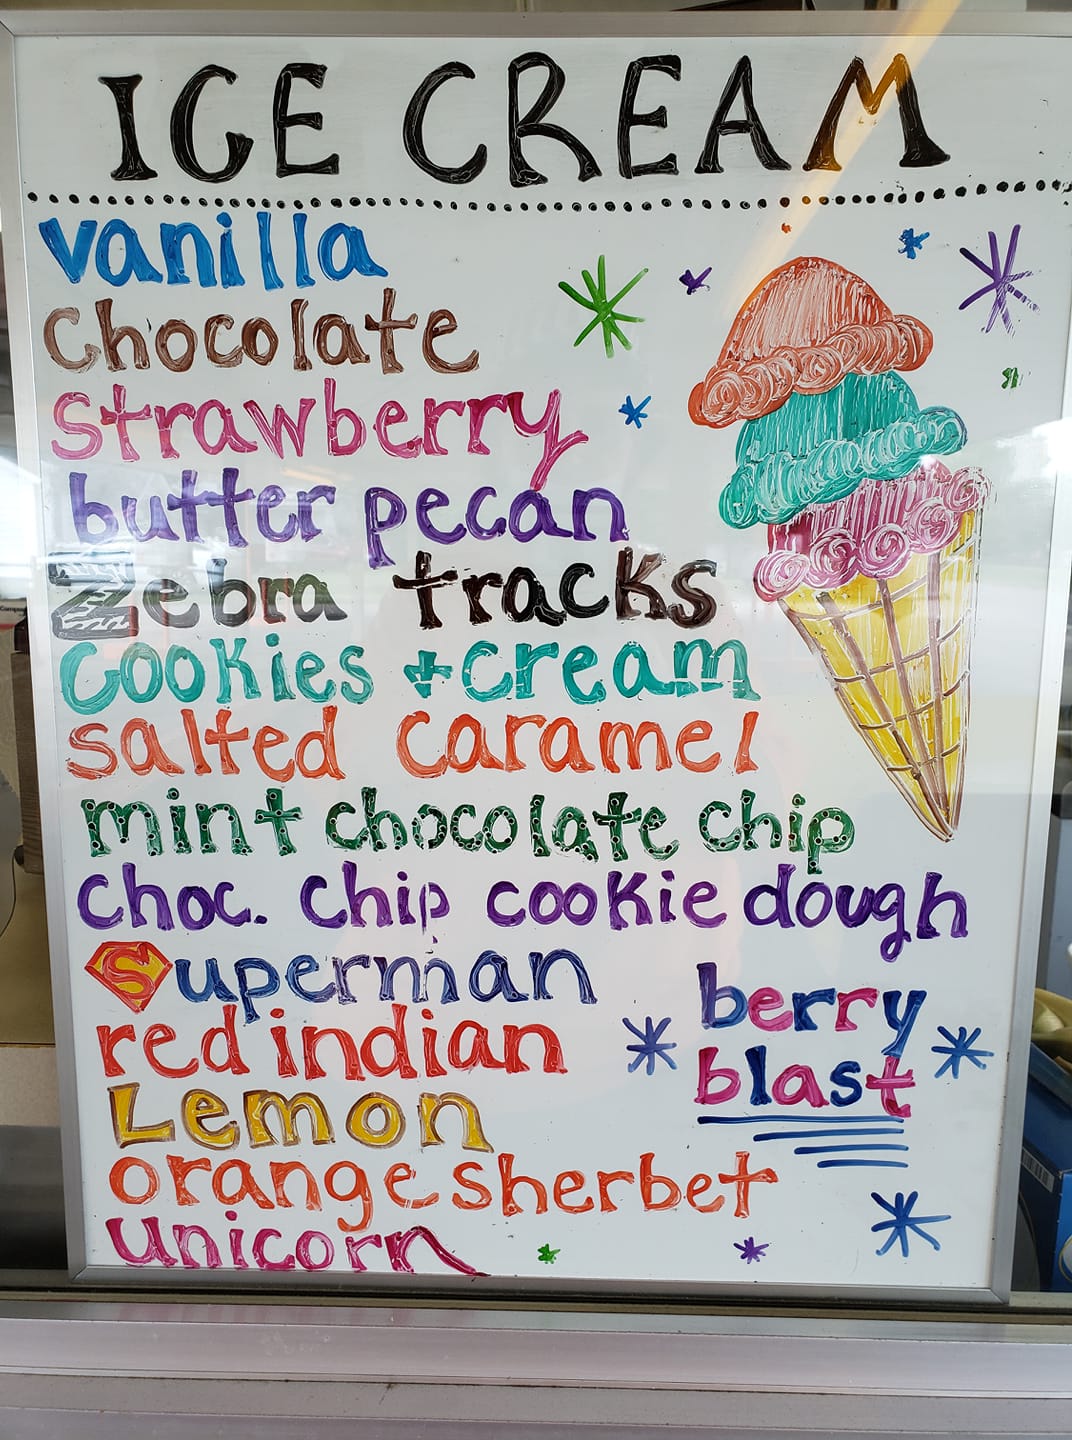 ICE CREAM
vanilla
Chocolate
strawberry
butter pecan
Zebra tracks
Cookies + cream
salted caramel
mint chocolate chip
choc. chip cookie dough
Superman
red indian
Lemon
orange sherbet
unicorn
berry
blast